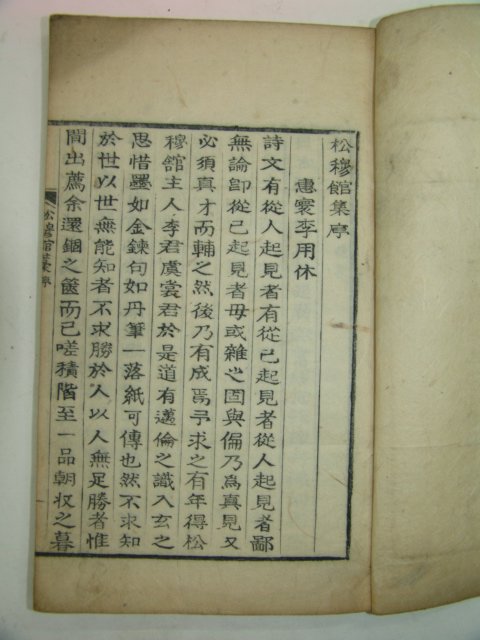 松穆館集序
惠寰李用休
詩文有從人起見者有從己起見者從人起見者鄙
無論卽從己起見者毋或雜之固與偏乃爲眞見又
必須真才而輔之然後乃有成焉予求之有年得松
穆舘主人李君虞裳君於是道有邁倫之識入玄之
思惜墨如金鍊句如丹筆一落紙可傳也然不求知
於世以世無能知者不求勝於人以人無足勝者惟
間出薦余還錮之篋而已嗟積階至一品朝収之暮
松穆館集序